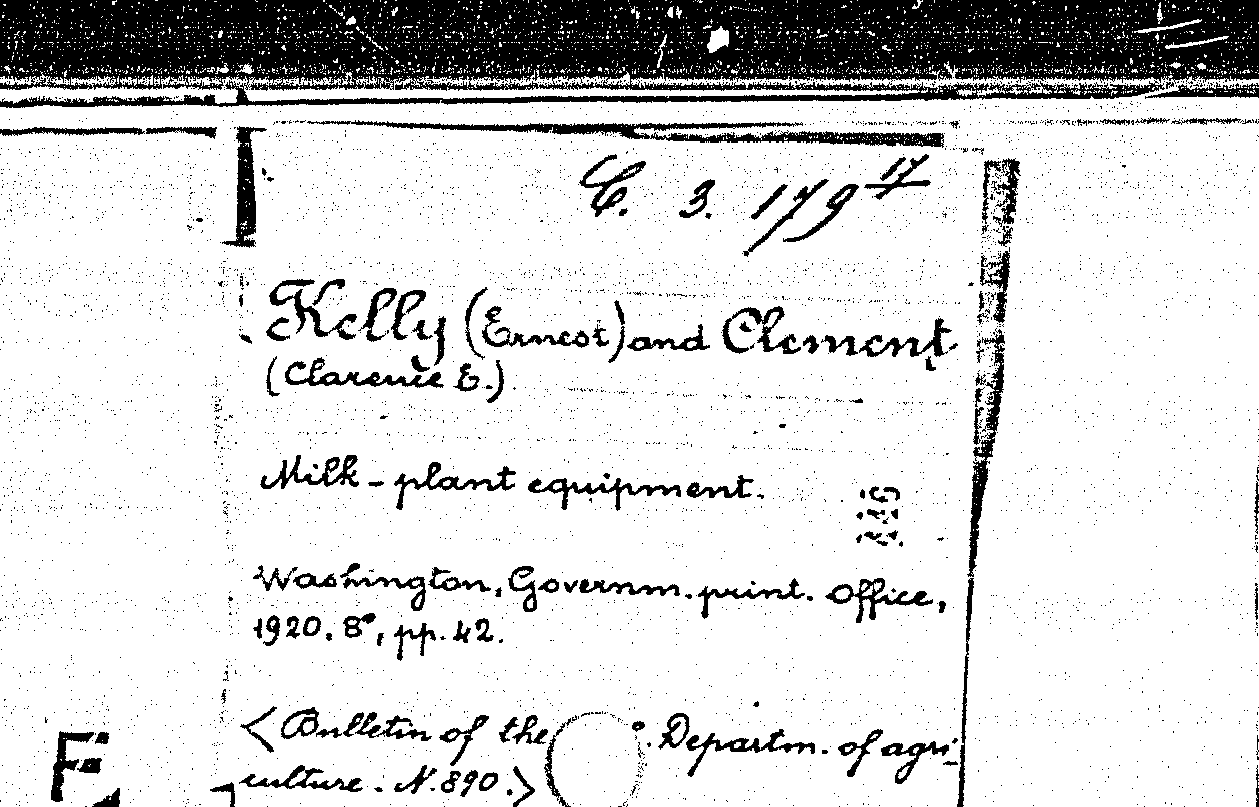 C. 3. 179 17
Kelly (Ernest) and Clement
(Clarence E.)
Milk-plant equipment.
Washington, Governm. print. Office,
1920. 8°, pp. 42.
<Bulletin of the . Departm. of agri-
culture. N. 890.>
F